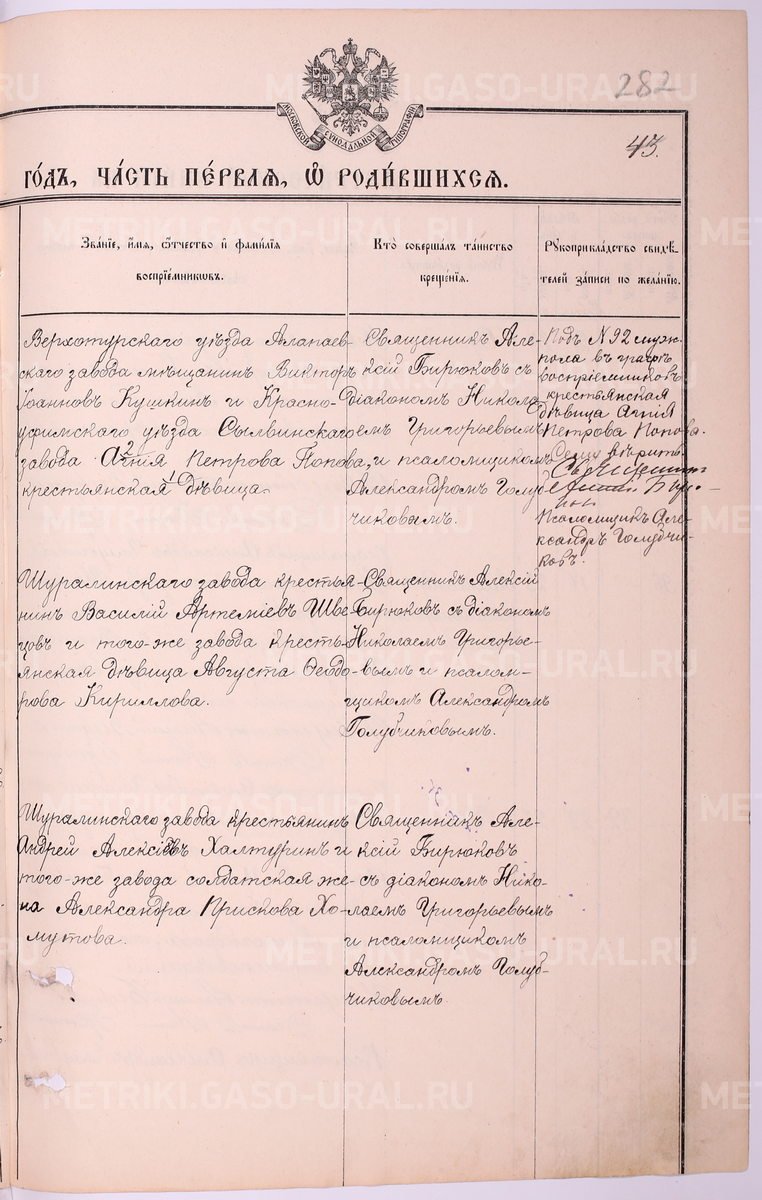 282
43.
МОСКОВСКОЙ СѴНОДАЛЬНОЙ ТИПОГРАФІИ
го́дъ, ча́сть пе́рвая, ѡ҆ роди́вшихся.
Зва́нїе, и҆́мя, ѻ҆́тчество и҆ фами́лїя
воспрїе́мникѡвъ.
Кто̀ соверша́лъ та́инство
креще́нїя.
Рꙋкоприкла́дство свидѣ́-
телей за́писи по жела́нїю.
Верхотурскаго уѣзда Алапаев-
скаго завода мѣщанинъ Викторъ
Іоанновъ Кушкинъ и Красно-
уфимскаго уѣзда Сылвинскаго
завода Агнія Петрова Попова,
крестьянская дѣвица
Священникъ Але-
ксій Бирюковъ съ
діакономъ Никола-
емъ Григорьевымъ
и псаломщикомъ
Александромъ Голуб-
чиковымъ.
Подъ N 92 муж.
пола въ графѣ
воспріемниковъ
крестьянская
дѣвица Агнія
Петрова Попова.
вѣрить.
Священникъ
Псаломщикъ Але-
ксандръ Голубчи-
ковъ.
Шуралинскаго завода крестья-
нинъ Василій Артеміевъ Шве-
цовъ и того-же завода кресть-
янская дѣвица Августа Ѳеодо-
рова Кириллова.
Священникъ Алексій
Бирюковъ съ діакономъ
Николаемъ Григорье-
вымъ и псалом-
щикомъ Александромъ
Голубчиковымъ.
Шуралинскаго завода крестьянинъ
Андрей Алексіевъ Халтуринъ и
того-же завода солдатская же-
на Александра Прискова Хо-
мутова.
Священникъ Але-
ксій Бирюковъ
съ діакономъ Нико-
лаемъ Григорьевымъ
и псаломщикомъ
Александромъ Голуб-
чиковымъ.
METRIKI.GASO-URAL.RU